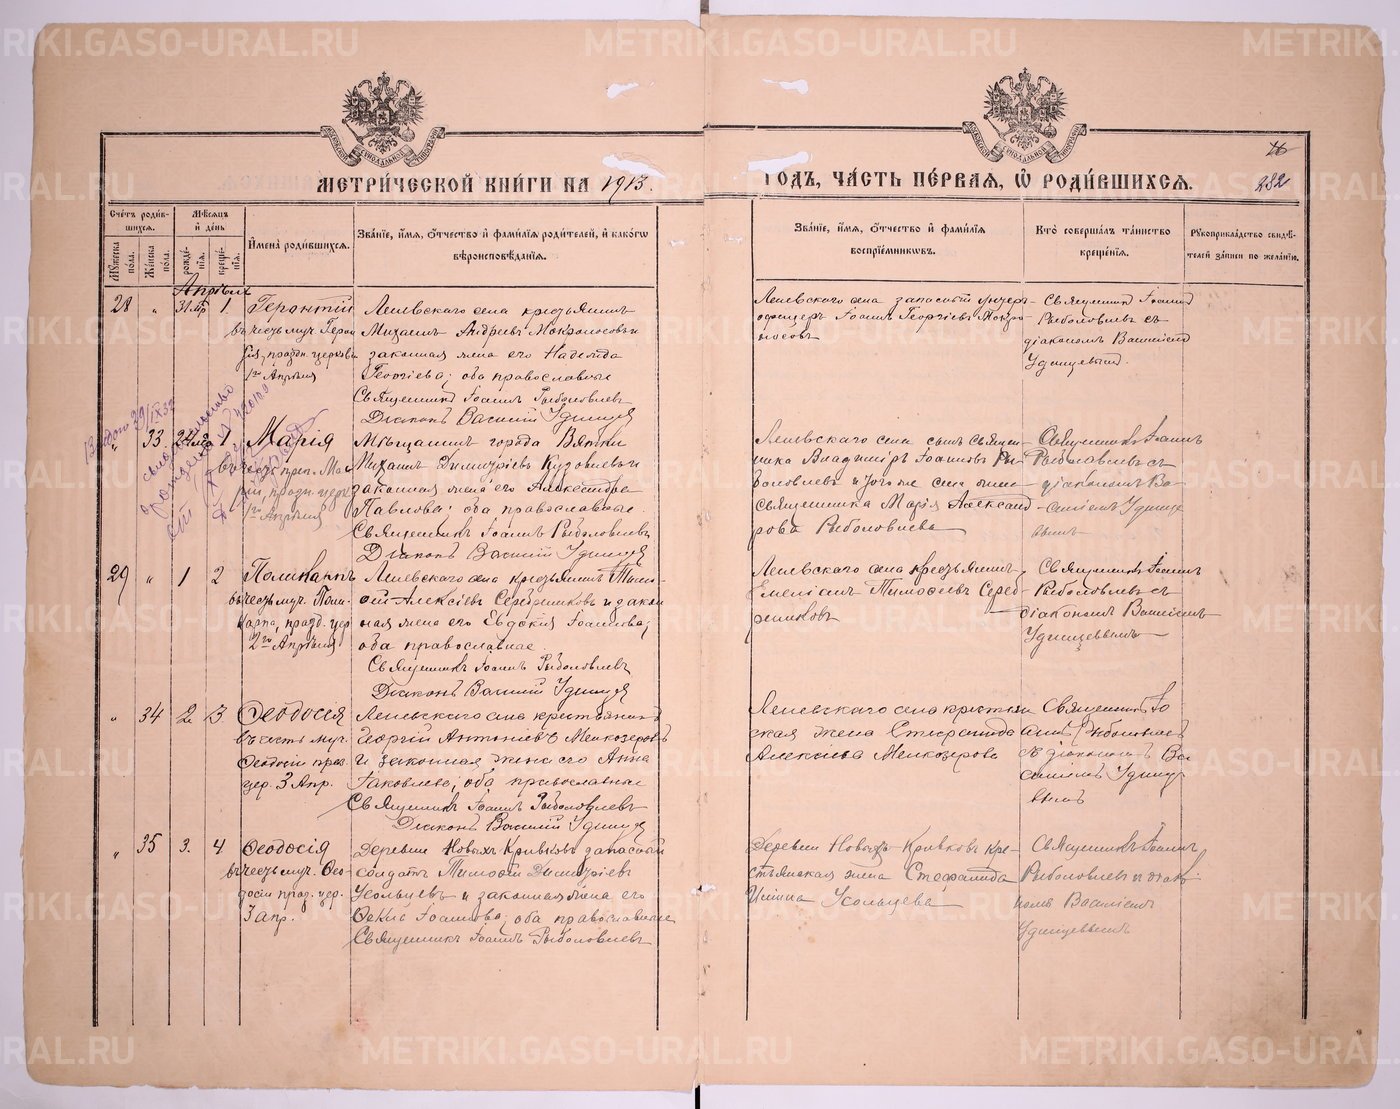 METRIKI.GASO-URAL.RU
МЕТРИ́ЧЕСКОЙ КНИ́ГИ НА 1913.
ГОДЪ, ЧА́СТЬ ПЕ́РВАЯ, Ѿ РОДИ́ВШИХСЯ.
76
282
Сче́тъ роди́в-
шихся.
Му́жеска по́ла.
Же́нска по́ла.
Мѣ́сяцъ и҆ де́нь
рожде́-нїя.
креще́-нїя.
И҆мена̀ роди́вшихся.
Зва́нїе, и҆́мя, ѻ҆́тчество и҆ фами́лїя роди́телей, и҆ како́гѡ
вѣроисповѣ́данїя.
Зва́нїе, и҆́мя, ѻ҆́тчество и҆ фами́лїя
воспрїе́мниковъ.
Кто̀ соверша́лъ та́инство
креще́нїя.
Рукоприкла́дство свидѣ́-
телей за́писи по жела́нїю.
Апрѣль
28 " 31 мр 1
Геронтій
въ честь муч. Герон
тія, праздн. церковью
1го Апрѣля
Михаилъ Андреевъ Мокроносовъ и
законная жена его Надежда
Георгіева; оба православные
Священникъ Іоаннъ Рыболовлевъ
Діаконъ Василій Удинцев
села запасный унтеръ
офицеръ Іоаннъ Георгіевъ Мокро
носовъ
Священник Іоанн
Рыболовлевъ съ
діакономъ Василіем
Удинцевым.
" 33. 24 мр 1
Марія
въ честь преп. Ма
ріи, праздн. церк.
1го Апрѣля
Мѣщанинъ города Вятки
Михаилъ Димитріевъ Кузовлевъ и
законная жена его Александра
Павлова; оба православные.
Священникъ Іоаннъ Рыболовлевъ
Діаконъ Василій Удинцев
села сынъ священ
ника Владиміръ Іоанновъ Ры-
боловлевъ и того же села
священника Марія Александ
рова Рыболовлева
Священникъ Іоаннъ
Рыболовлевъ съ
діакономъ Ва-
силіемъ Удинце
вымъ
29 " 1 2
Поликарпъ
въ честь муч. Поли-
карпа, празд. цер
2го Апрѣля
села крестьянинъ Тимо-
ѳей Алексіевъ Серебренниковъ и закон
ная жена его Евдокія Іоаннова;
оба православные.
Священникъ Іоаннъ Рыболовлевъ
Діаконъ Василій Удинцев
села крестьянинъ
Емеліанъ Тимоѳеевъ Сереб-
ренниковъ
Священникъ Іоаннъ
Рыболовлевъ съ
діакономъ Василіемъ
Удинцевымъ
" 34 2 3
Ѳеодосія
въ честь муч.
Ѳеодосіи праз.
цер. 3 Апр.
села крестьянинъ
Георгій Антоніевъ Мелкозеровъ
и законная жена его Анна
Іаковлева; оба православные
Священникъ Іоаннъ Рыболовлевъ
Діаконъ Василій Удинцев
села крестьян
ская жена Стефанида
Алексіева Мелкозерова
Священникъ Іо
аннъ Рыболовлевъ
съ діакономъ Ва
силіемъ Удинце
вымъ
" 35 3. 4
Ѳеодосія
въ честь муч. Ѳео-
досіи празд. цер.
3 апр.
Деревни Новыхъ Кривковъ запасный
солдатъ Тимоѳей Димитріевъ
Усольцевъ и законная жена его
Ѳекла Іоаннова; оба православные
Священникъ Іоаннъ Рыболовлевъ
Деревни Новыхъ Кривковъ кре-
стьянская жена Стефанида
Усольцева
Священникъ Іоаннъ
Рыболовлевъ и діако-
номъ Василіемъ
Удинцевымъ